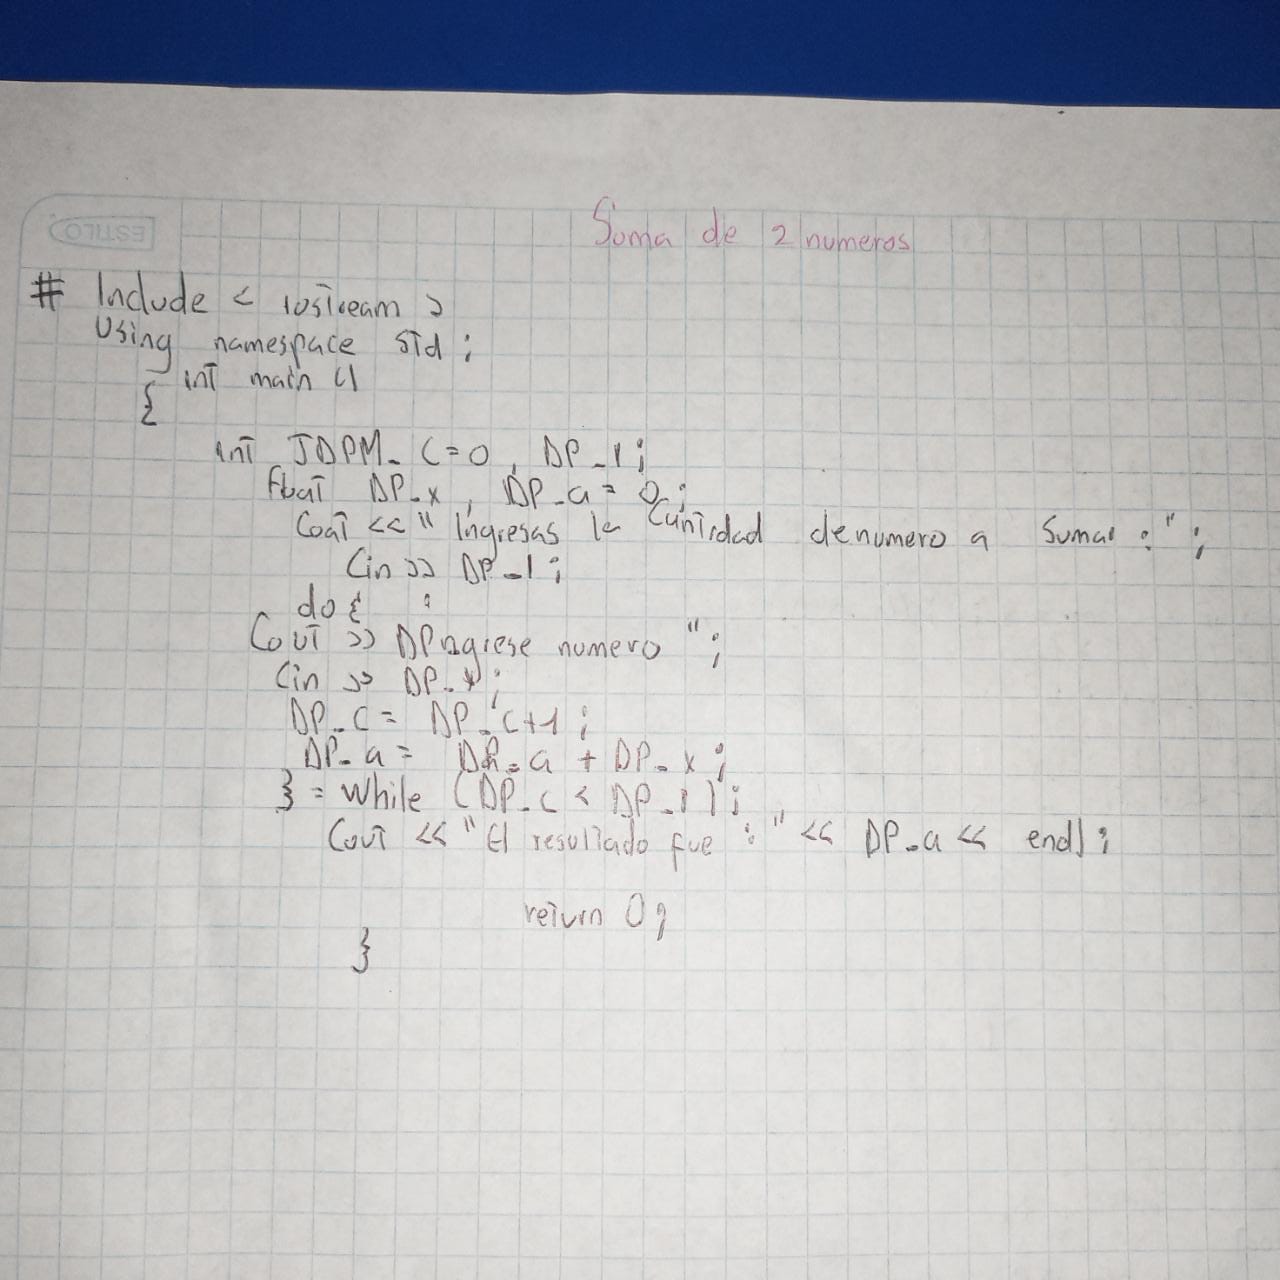 ESTILO
Suma de 2 numeros
# Include < iostream >
Using namespace std ;
int main ()
{
int JDPM_ C=0 , DP_1 ;
float DP_x , DP_a = 0 ;
Coat << " Ingresas la Cantidad de numero a Sumar : " ;
Cin >> DP_1 ;
do { :
Cout >> DPngrese numero " ;
Cin >> DP_x ;
DP_C = DP_C+1 ;
DP_a = DP_a + DP_x ;
} = While (DP_C < DP_1) ;
Cout << " El resultado fue : " << DP_a << endl ;
return 0 ;
}